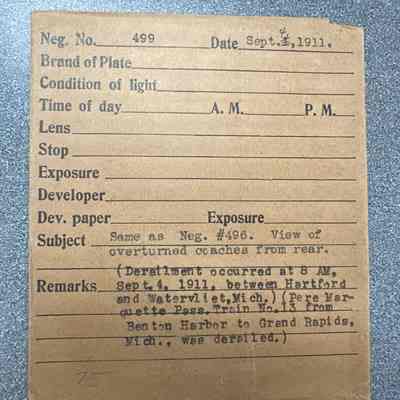 Neg. No. 499 Date Sept. 4, 1911.
Brand of Plate
Condition of light
Time of day A. M. P. M.
Lens
Stop
Exposure
Developer
Dev. paper Exposure
Subject Same as Neg. #496. View of
overturned coaches from rear.
(Derailment occurred at 8 AM,
Remarks Sept. 4, 1911, between Hartford
and Watervliet, Mich.) (Pere Mar-
quette Pass. Train No. 13 from
Benton Harbor to Grand Rapids,
Mich., was derailed.)